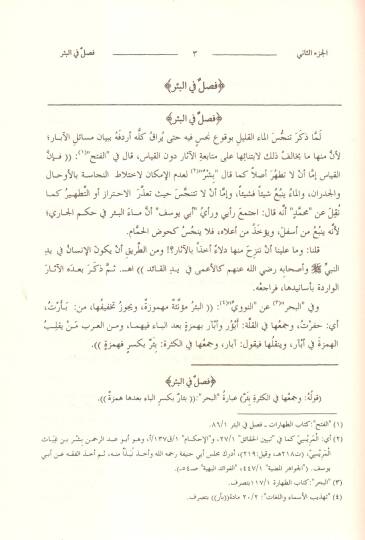 الجزء الثاني ٣ فصل في البئر
﴿فصلٌ في البئر﴾
﴿فصلٌ في البئر﴾
لَمّا ذكَرَ تنجُّسَ الماء القليلِ بوقوع نجسٍ فيه حتى يُراقُ كلُّه أردفَهُ ببيان مسائلِ الآبار؛
لأنَّ منها ما يخالفُ ذلك لابتنائِها على متابعةِ الآثار دون القياس، قال في "الفتح"(١): ((فإنَّ
القياس إمَّا أنْ لا تطهُرَ أصلاً كما قال "بِشْرٌ"(٢) لعدمِ الإمكان لاختلاط النجاسة بالأوحال
والجدران، والماءُ ينبعُ شيئاً فشيئاً، وإمَّا أنْ لا تتنجَّسَ حيث تعذَّرَ الاحترازُ أو التَّطهيرُ كما
نُقِلَ عن "محمَّدٍ" أنَّه قال: اجتمعَ رأيي ورأيُ "أبي يوسف" أنَّ ماءَ البئر في حكم الجاري؛
لأنَّه ينبعُ من أسفلَ، ويؤخَذُ من أعلاه، فلا ينجُسُ كحوضِ الحمَّام.
قلنا: وما علينا أنْ ننزحَ منها دِلاءً أخذاً بالآثار؟! ومن الطَّريقِ أنْ يكونَ الإنسانُ في يدِ
النبيِّ ﷺ وأصحابِه رضي الله عنهم كالأعمى في يدِ القائد)) اهـ. ثمَّ ذكَرَ بعدَه الآثارَ
الواردة بأسانيدها، فراجعه.
وفي "البحر"(٣) عن "النوويِّ"(٤): ((البئرُ مؤنَّثةٌ مهموزةٌ، ويجوزُ تخفيفُها، من: بَأَرْتُ،
أي: حفرْتُ، وجمعُها في القلَّة: أَبْؤُر وأَبْآر بهمزةٍ بعد الباء فيهما، ومن العرب مَنْ يقلِبُ
الهمزةَ في أَبْآر، وينقلُها فيقول: آبار، وجمعُها في الكثرة: بِئَرٌ بكسرٍ فهمزةٍ)).
﴿فصلٌ في البئر﴾
(قولُهُ: وجمعُها في الكثرةِ بِئَرٌ) عبارةُ "البحر": ((بِئار بكسرِ الباء بعدها همزةٌ)).
(١) "الفتح": كتاب الطهارات ـ فصل في البئر ٨٦/١.
(٢) أي: المَرِيْسيّ كما في "تبيين الحقائق" ٢٧/١، و"الإحكام" ١/ق١٣٧/أ، وهو أبو عبد الرحمن بشر بن غياث
المَرِيْسيّ، (ت٢١٨هـ، وقيل: ٢١٩)، أدرك مجلس أبي حنيفة رحمه الله وأخذ نُبَذاً منه، ثم أخذ الفقه عن أبي
يوسف. ("الجواهر المضية" ٤٤٧/١، "الفوائد البهية" صـ٥٤ـ).
(٣) "البحر": كتاب الطهارة ١١٧/١ بتصرف.
(٤) "تهذيب الأسماء واللغات": ٢٠/٢ مادة((بأر)) بتصرف.